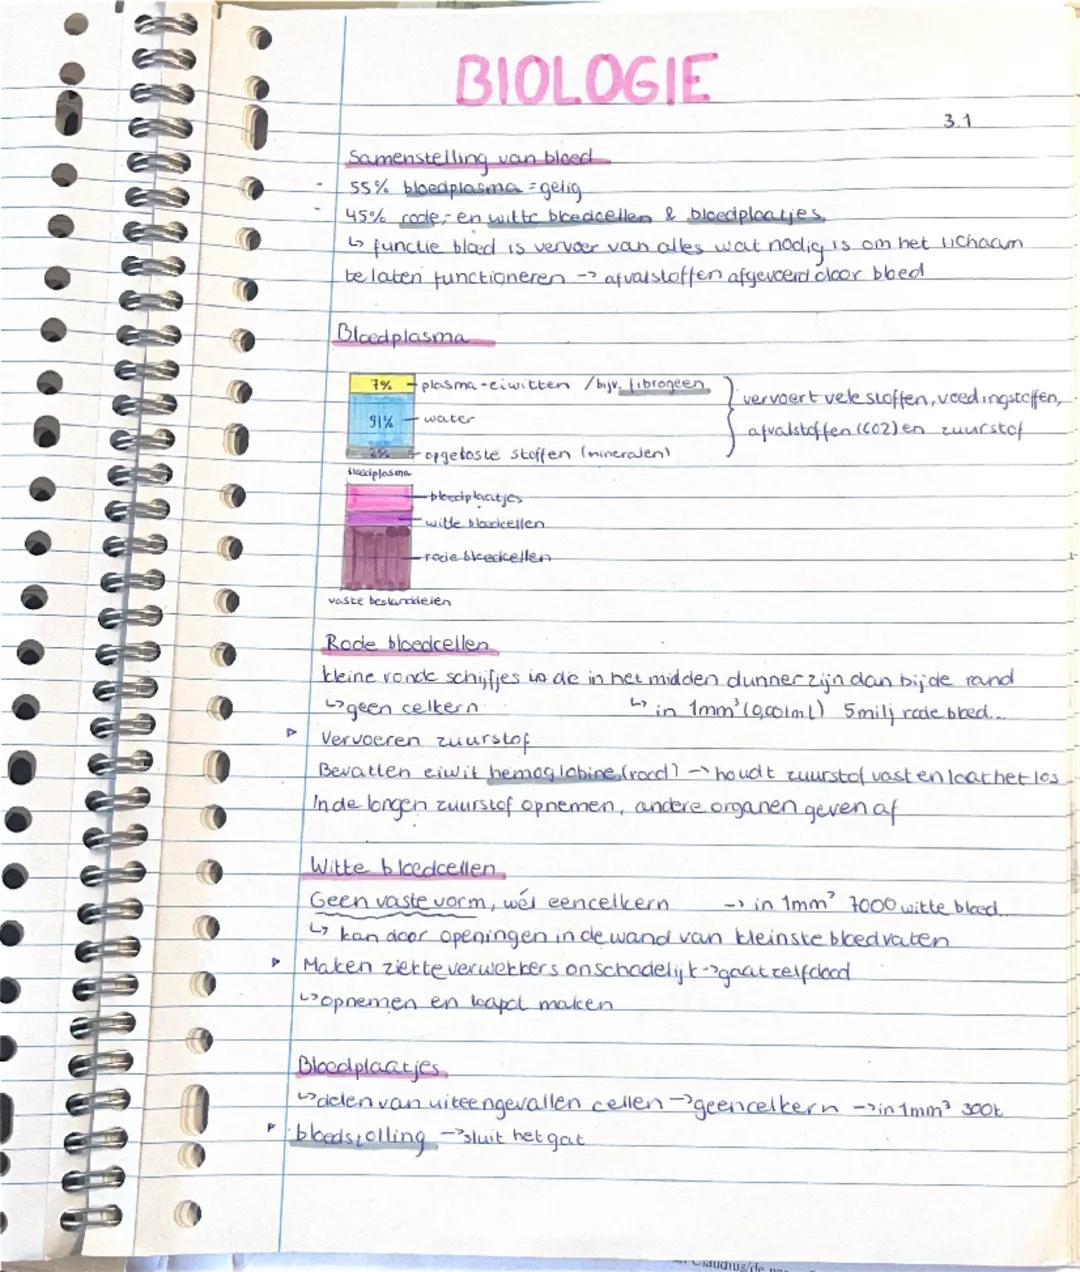 BIOLOGIE
3.1
Samenstelling van bloed
- 55% bloedplasma = gelig
- 45% rode,- en witte bloedcellen & bloedplaatjes
↳ functie bloed is vervoer van alles wat nodig is om het lichaam
te laten functioneren -> afvalstoffen afgevoerd door bloed
Bloedplasma
7% plasma-eiwitten / bijv. fibrogeen
91% water
2% opgeloste stoffen (mineralen)
vervoert vele stoffen, voedingstoffen,
afvalstoffen (CO2) en zuurstof
bloedplasma
bloedplaatjes
witte bloedcellen
rode bloedcellen
vaste bestanddelen
Rode bloedcellen
kleine ronde schijfjes die in het midden dunner zijn dan bij de rand
↳ geen celkern ↳ in 1mm³ (0,001ml) 5milj rode bloed...
▹ Vervoeren zuurstof
Bevatten eiwit hemoglobine (rood) -> houdt zuurstof vast en laat het los
In de longen zuurstof opnemen, andere organen geven af
Witte bloedcellen
Geen vaste vorm, wél een celkern -> in 1mm³ 7000 witte bloed...
↳ kan door openingen in de wand van kleinste bloedvaten
▹ Maken ziekteverwekkers onschadelijk -> gaat zelf dood
↳ opnemen en kapot maken
Bloedplaatjes
↳ delen van uiteengevallen cellen -> geen celkern -> in 1mm³ 300k
▹ bloedstolling -> sluit het gat